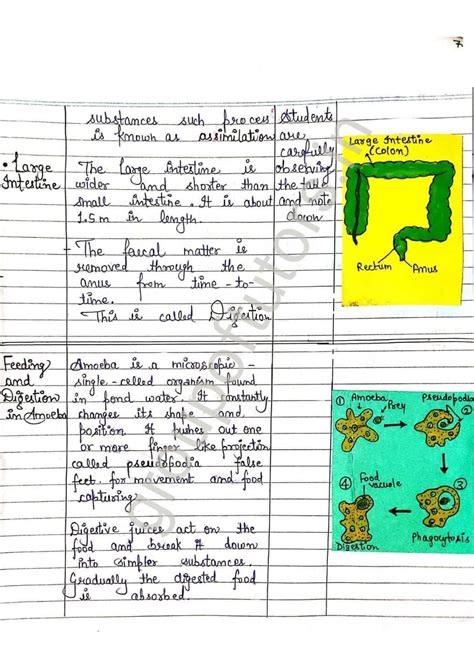 7
substances such process
is known as assimilation
Students
are
carfully
observing
the
and note
down
• Large
Intestine
The large intestine is
wider and shorter than
small intestine. It is about
1.5 m in length.
- The faecal matter is
removed through the
anus from time-to-
time.
This is called Digestion
Large Intestine
(Colon)
Rectum
Anus
Feeding
and
Digestion
in Amoeba
Amoeba is a microscopic -
single-celled organism found
in pond water. It constantly
changes its shape and
position. It pushes out one
or more finger like projection
called pseudopodia false
feet for movement and food
capturing
Digestive juices act on the
food and break it down
into simpler substances.
Gradually the digested food
is absorbed.
① Amoeba
Prey
Pseudopodia
②
③
④ Food
vacuole
Digestion
Phagocytosis
groupoftutors.in